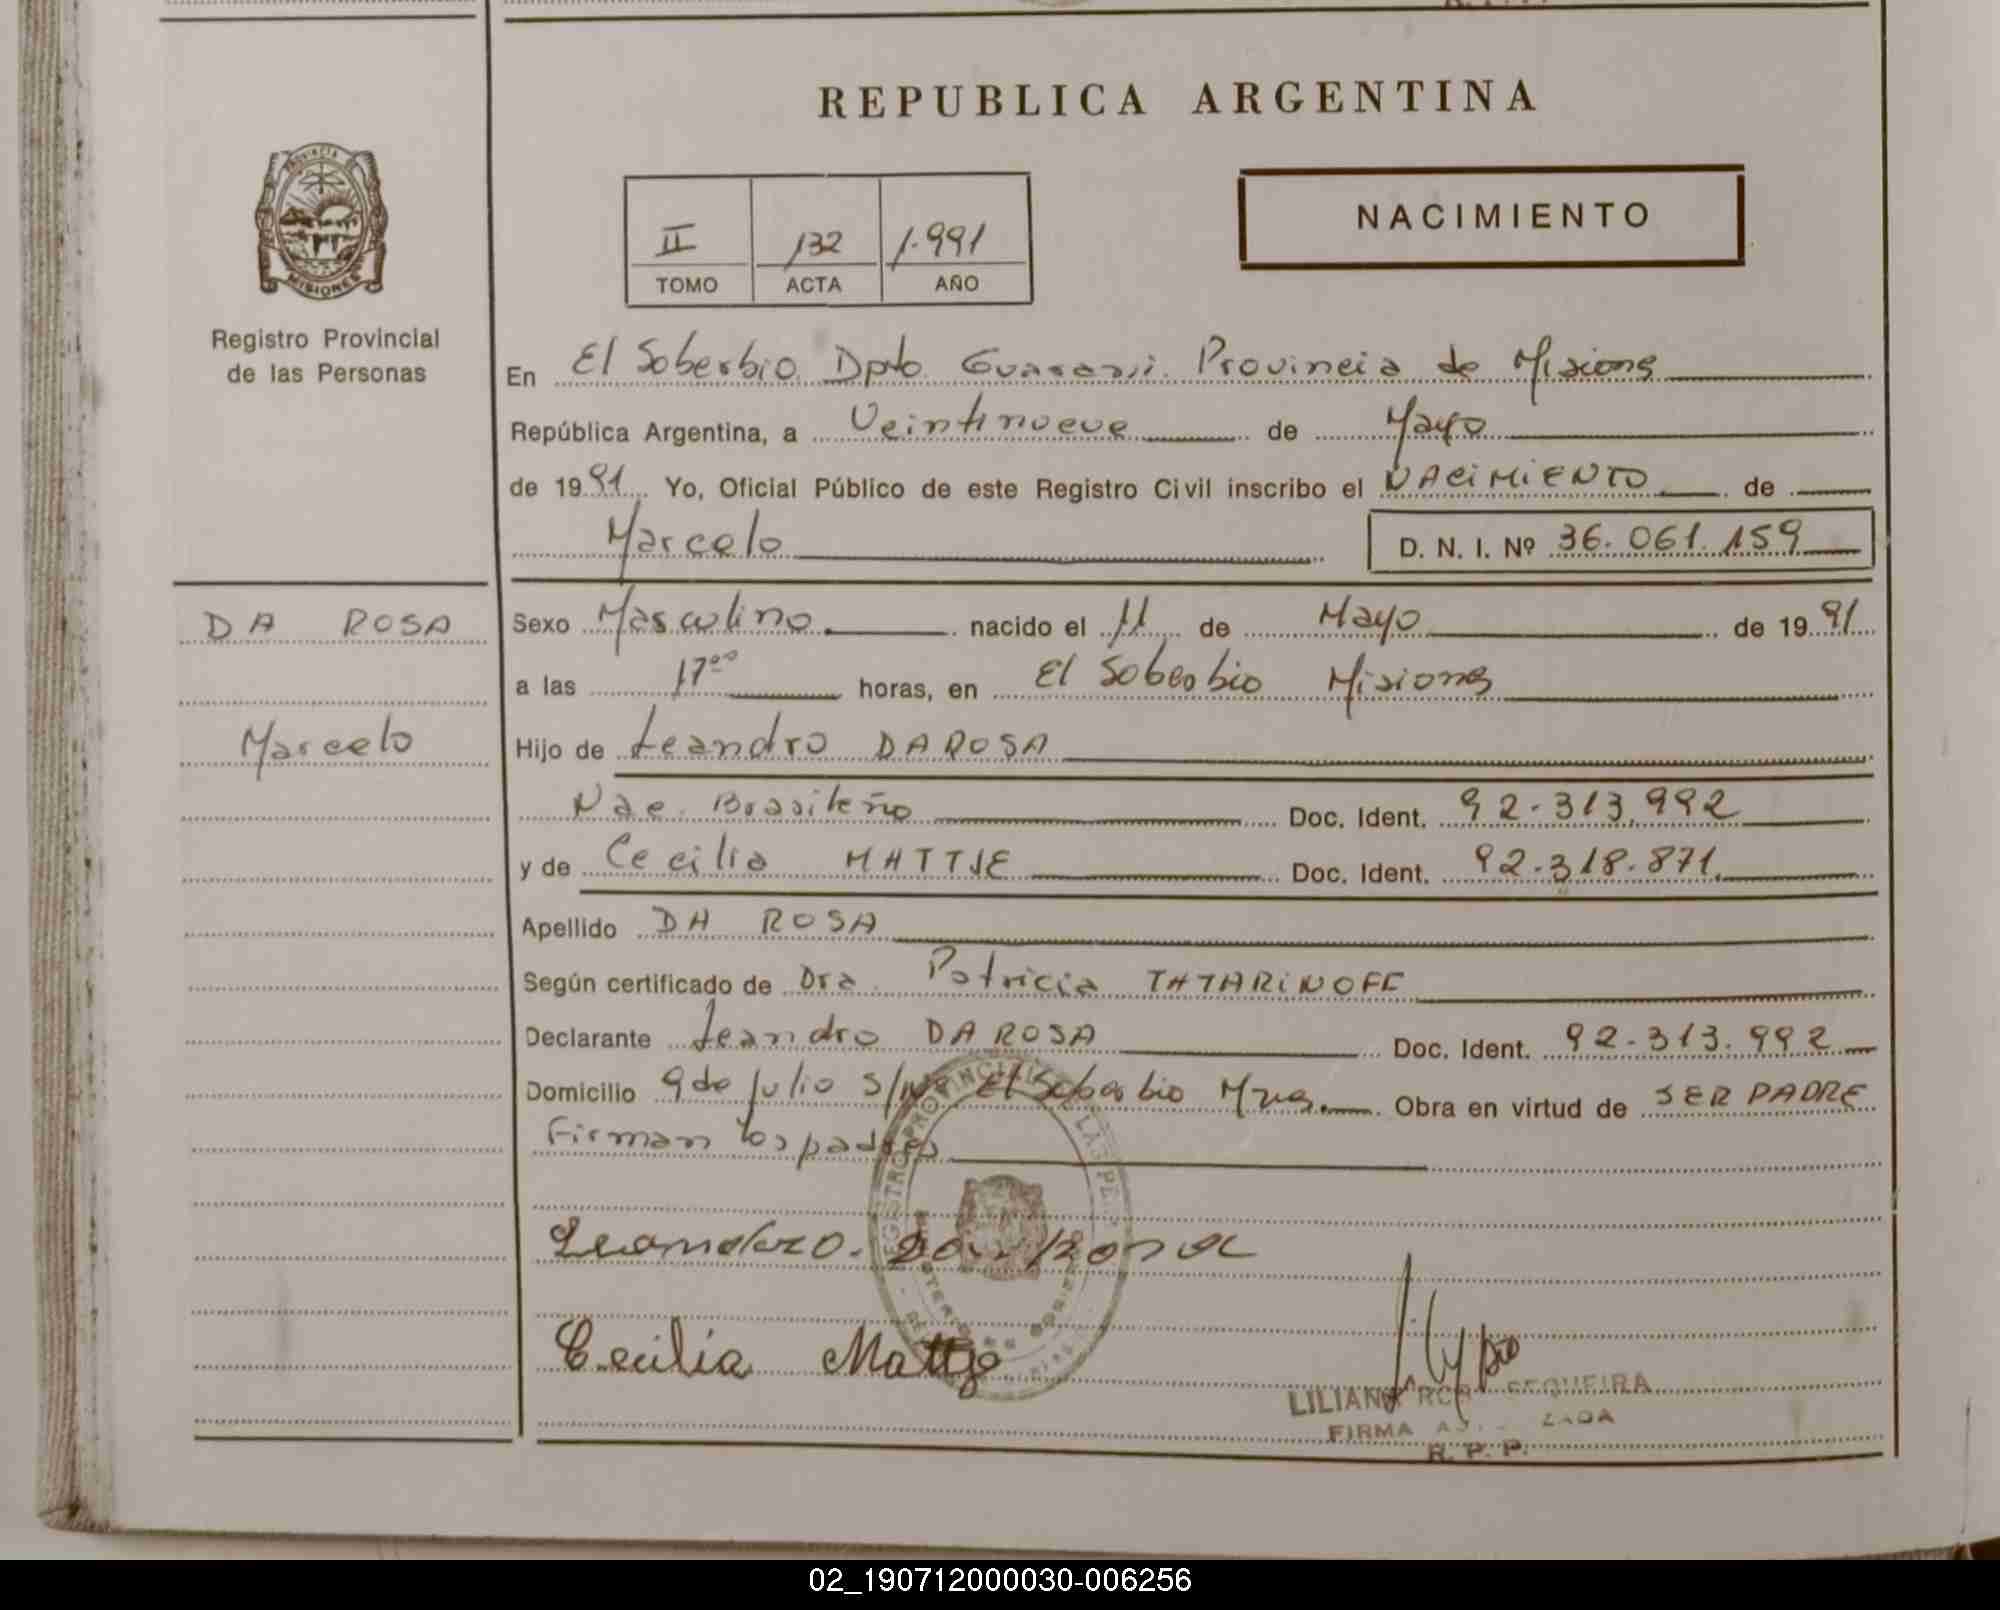 REPUBLICA ARGENTINA
PROVINCIA DE
MISIONES
Registro Provincial
de las Personas
II 132 1.991
TOMO ACTA AÑO
NACIMIENTO
En El Soberbio Dpto. Guarani. Provincia de Misiones
República Argentina, a Veintinueve de Mayo
de 1991 Yo, Oficial Público de este Registro Civil inscribo el NACIMIENTO de
Marcelo D. N. I. Nº 36.061.159
DA ROSA
Marcelo
Sexo Masculino nacido el 11 de Mayo de 1991
a las 17⁰⁰ horas, en El Soberbio Misiones
Hijo de Leandro DA ROSA
Nac. Brasileño Doc. Ident. 92.313.992
y de Cecilia MATTJE Doc. Ident. 92.318.871
Apellido DA ROSA
Según certificado de Dra. Patricia TATARINOFF
Declarante Leandro DA ROSA Doc. Ident. 92.313.992
Domicilio 9 de Julio S/Nº El Soberbio Mnes. Obra en virtud de SER PADRE
Firman los padres
REGISTRO PROVINCIAL DE LAS PE
Leandro da Rosa
Cecilia Mattje
LILIANA SEQUEIRA
FIRMA
R. P. P.
02_190712000030-006256